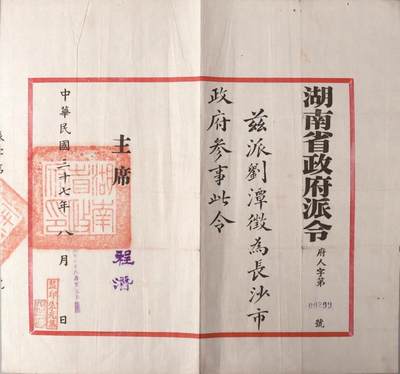 湖南省政府派令
府人字第
00899
號
茲派劉潭徵為長沙市
政府參事此令
主席
程潛
中華民國三十七年八月日
湖南省政府印